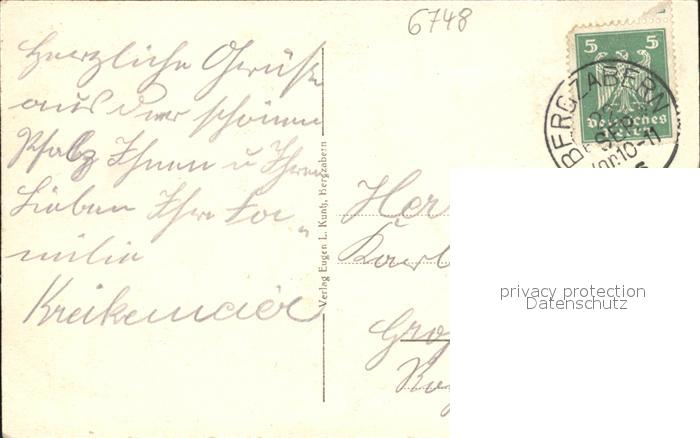 6748
Herzliche Grüße
aus der schönen
Pfalz Ihnen u Ihren
Lieben Ihre Fa-
milie
Kreikemeier
Verlag Eugen L. Kuntz, Bergzabern
5 5
Deutsches Reich
BERGZABERN
SEP
Vor.10-11
Her
Karl
Gro
privacy protection
Datenschutz